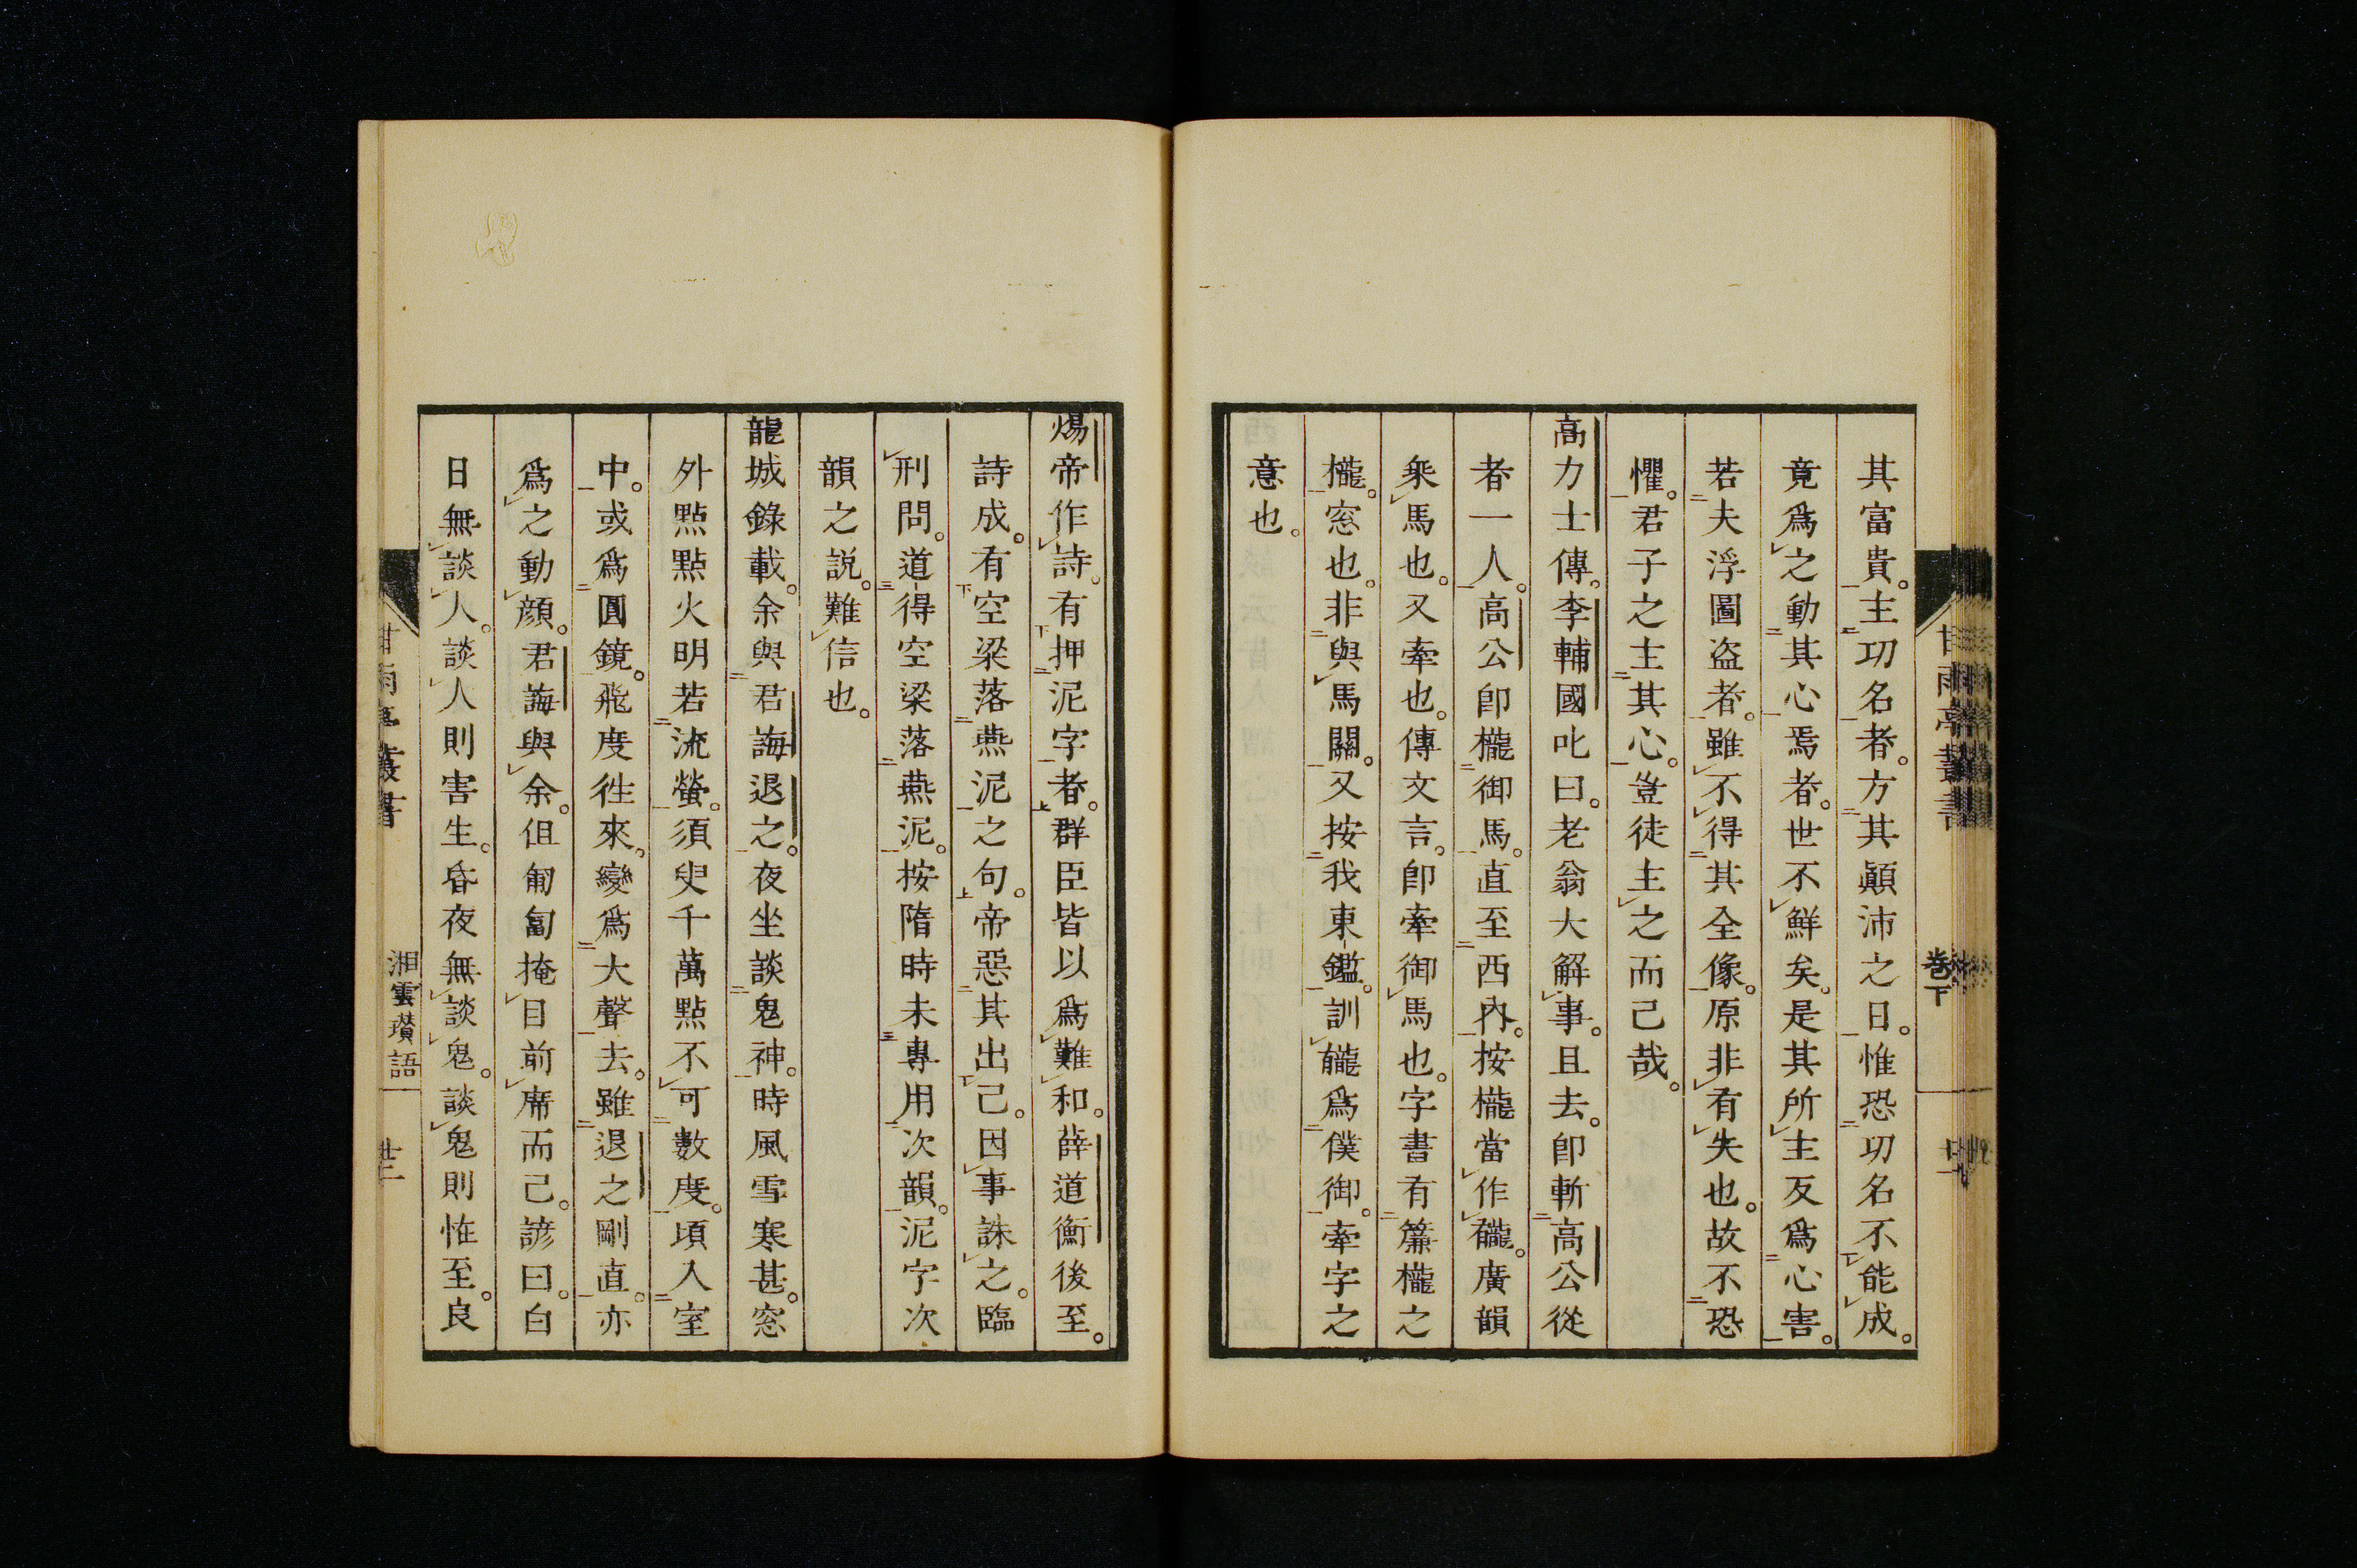 其富貴。主功名者。方其顚沛之日。惟恐功名不能成。
竟爲之動其心焉者。世不鮮矣。是其所主反爲心害。
若夫浮圖盗者。雖不得其全像。原非有失也。故不恐
懼。君子之主其心。豈徒主之而己哉。
高力士傳。李輔國叱曰。老翁大解事。且去。卽斬高公從
者一人。高公卽櫳御馬。直至西內。按櫳當作䪊。廣韻
乘馬也。又牽也。傳文言。卽牽御馬也。字書有簾櫳之
櫳。窓也。非與馬關。又按我東鑑。訓䪊爲僕御。牽字之
意也。
甘雨亭叢書
卷下
煬帝作詩。有押泥字者。群臣皆以爲難和。薛道衡後至。
詩成。有空梁落燕泥之句。帝惡其出己。因事誅之。臨
刑問。道得空梁落燕泥。按隋時未專用次韻。泥字次
韻之説。難信也。
龍城錄載。余與君誨退之。夜坐談鬼神。時風雪寒甚。窓
外點點火明若流螢。須臾千萬點不可數度。頃入室
中。或爲圓鏡。飛度徃來。變爲大聲去。雖退之剛直。亦
爲之動顔。君誨與余。但匍匐掩目前席而己。諺曰。白
日無談人。談人則害生。昏夜無談鬼。談鬼則恠至。良
甘雨亭叢書
湘雲瓚語